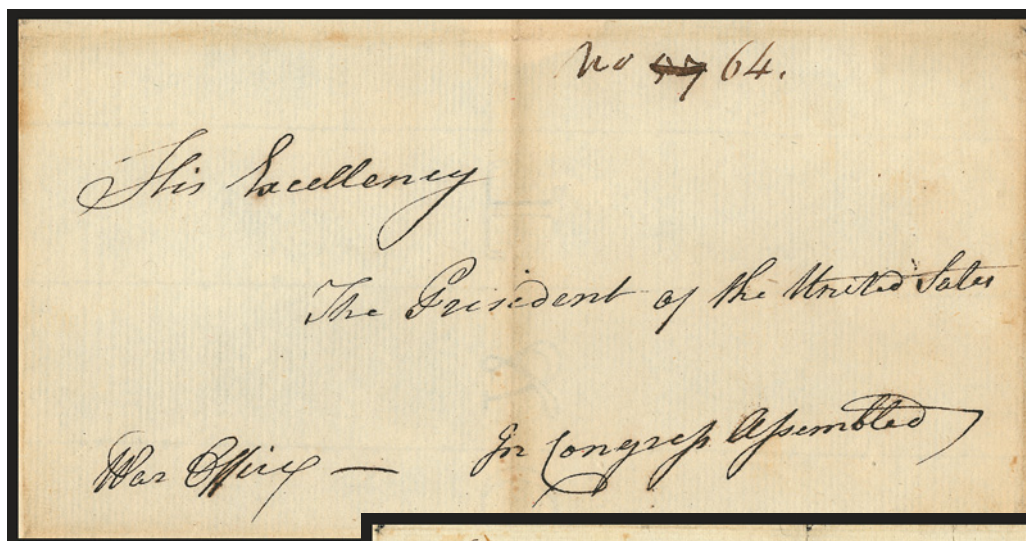 No 64.
His Excellency
The President of the United States
War Office — In Congress Assembled